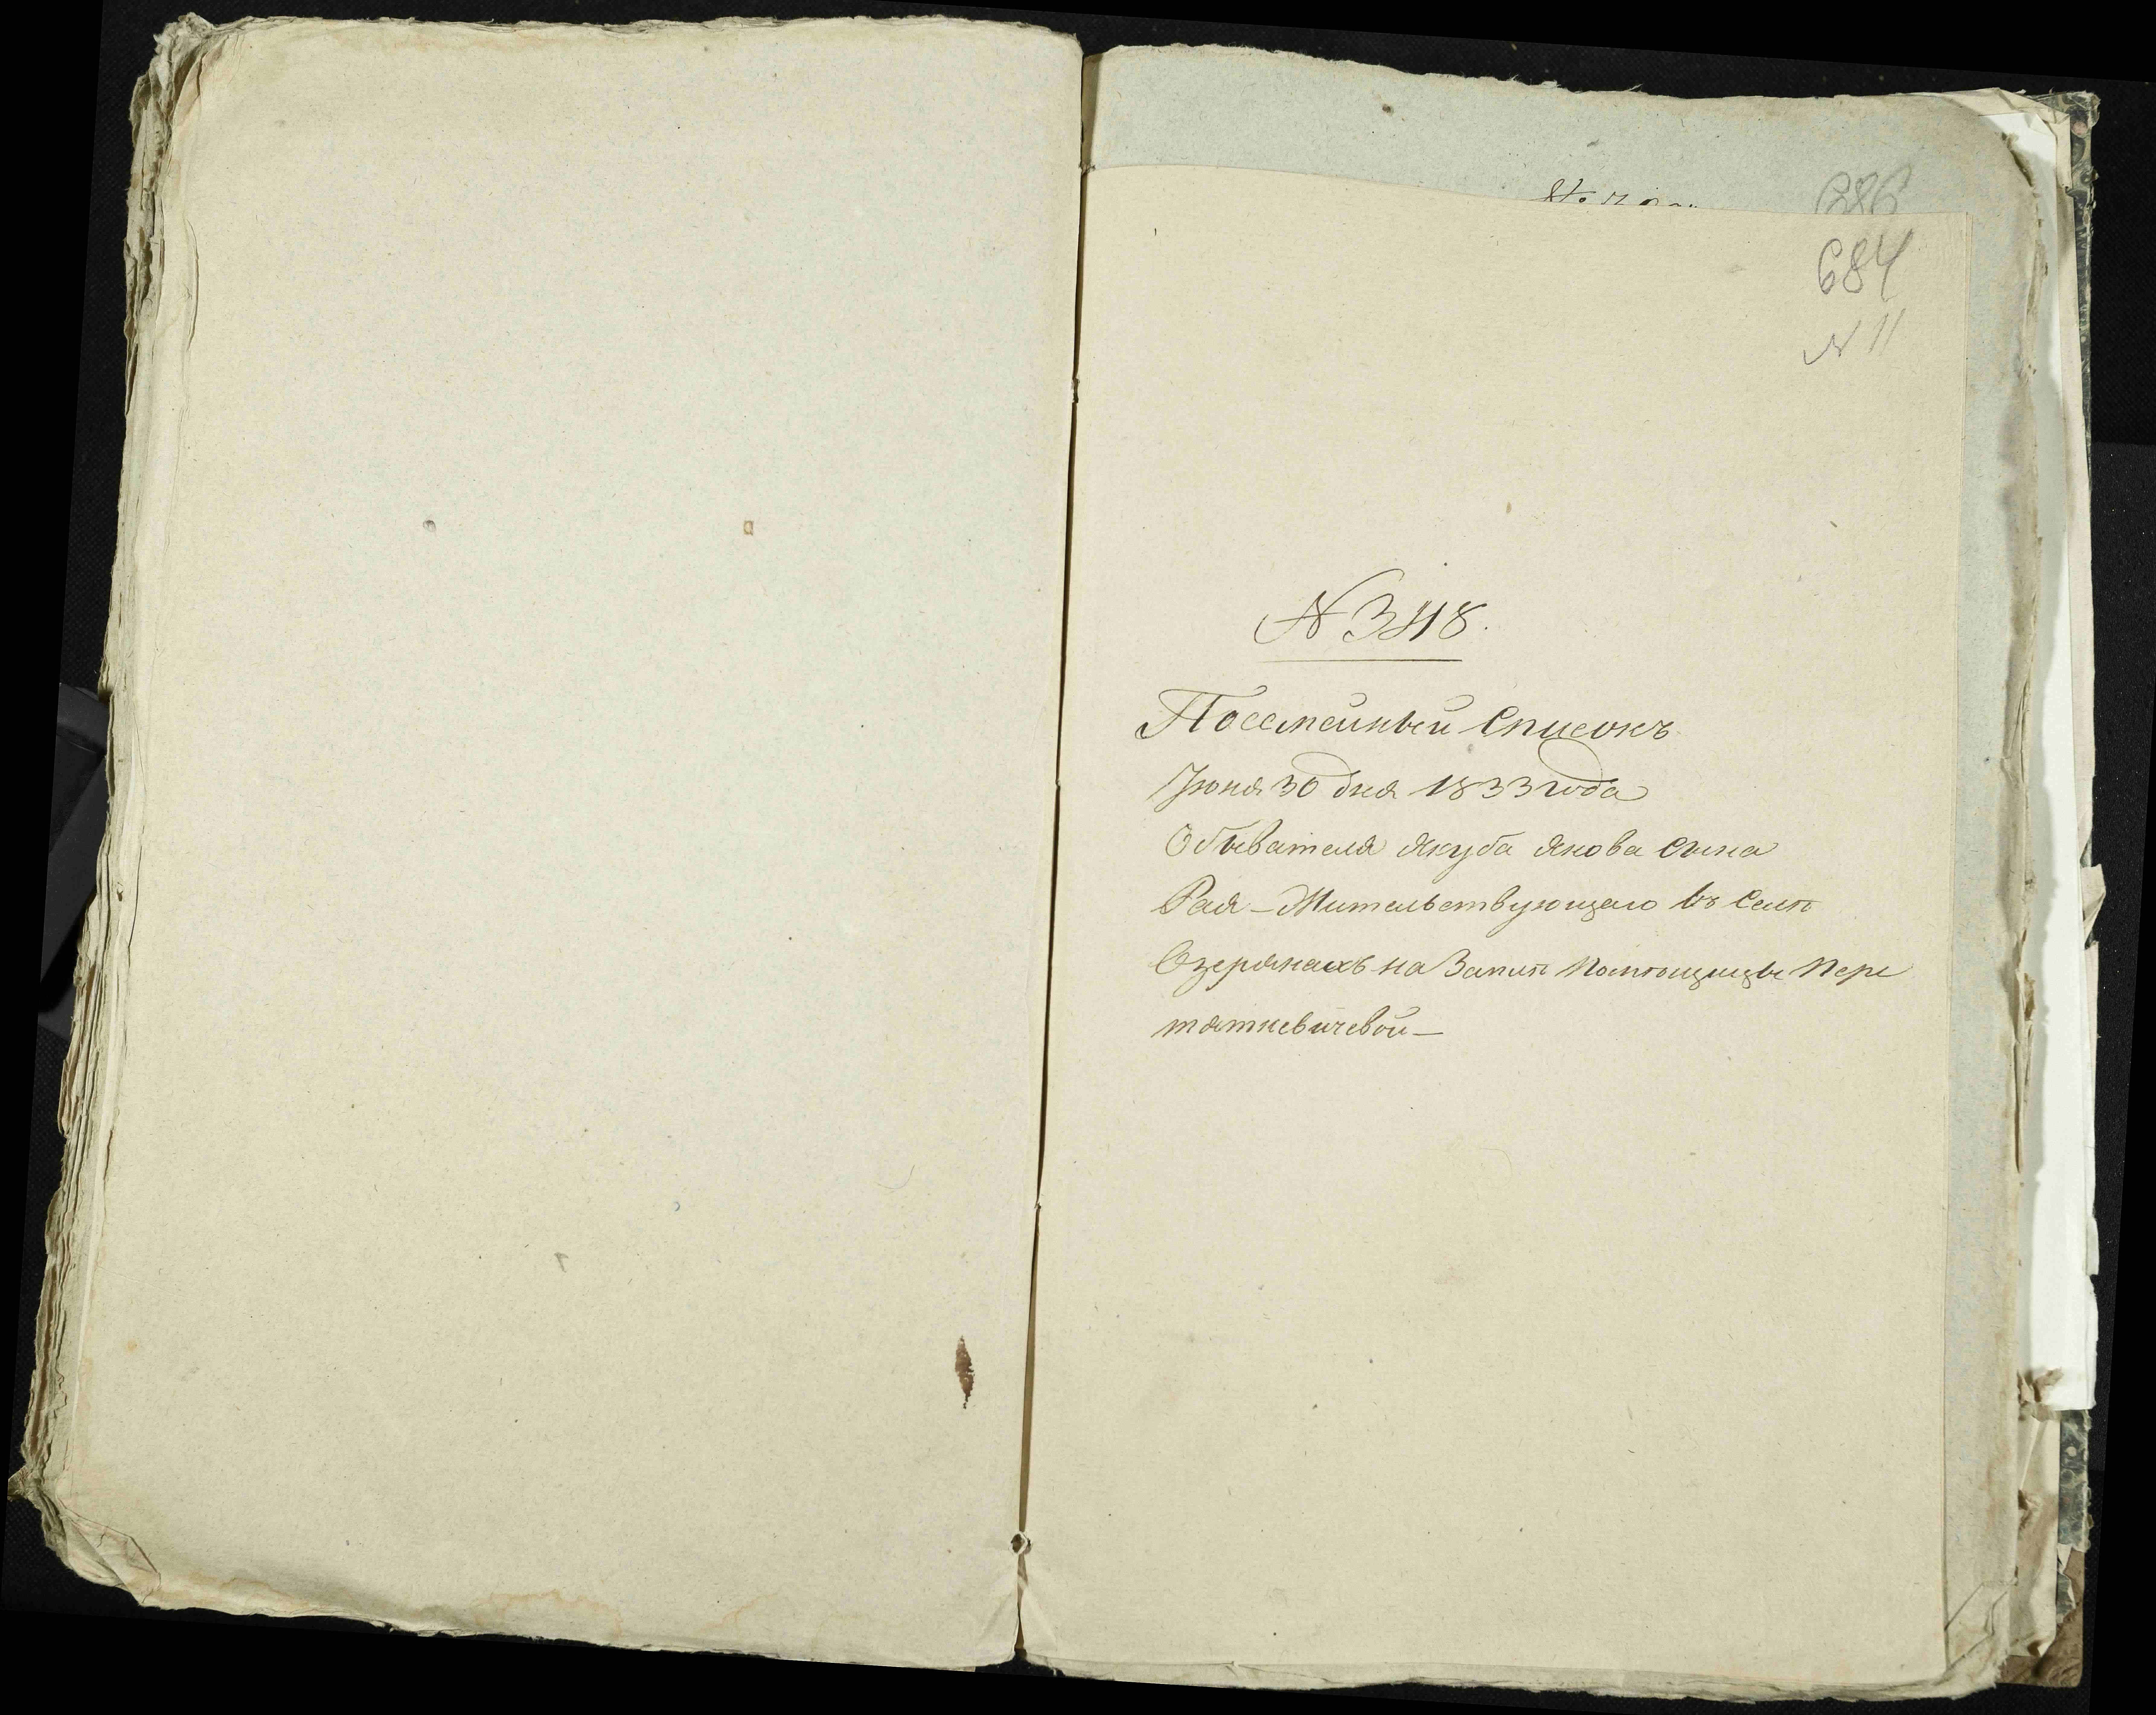 686
684
N 11
N 348.
Посемейный Списокъ
Іюня 30 дня 1833 года
Обывателя Якуба Якова Сына
Рая – Жительствующаго въ Селѣ
Озерянахъ на Землѣ Помѣщицы Пере
тяткевичевой –